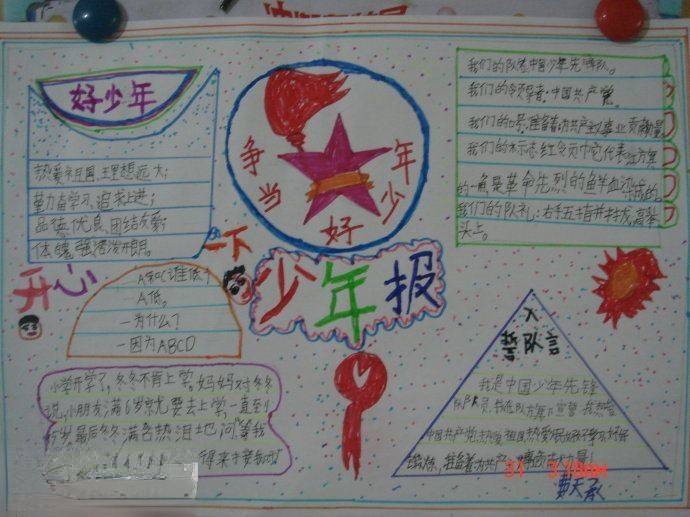 好少年
热爱祖国,理想远大;
勤奋学习、追求上进;
品德优良、团结友爱;
体魄强活泼开朗。
争当好少年
我们的队名:中国少年先锋队。
我们的领导者:中国共产党。
我们的标志:红领巾它代表
的一角是革命先烈的鲜血
我们的队礼:右手五指并拢,高举
头上。
开心一下
少年报
—A和C谁低?
—A低。
—为什么?
—因为ABCD
小学开学了,冬冬不肯上学。妈妈对冬冬
说,小朋友满6岁就要去上学,一直到
岁,最后冬冬满含热泪地问:等我
入队誓言
我是中国少年先锋
队队员,我在队旗下宣誓:我热爱
中国共产党,热爱祖国,热爱人民,好好学习,好好
锻炼,准备着:为共产主义事业贡献力量!